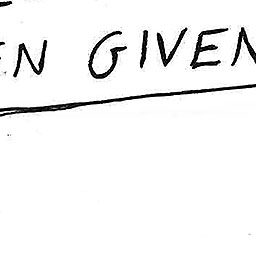 EN GIVEN